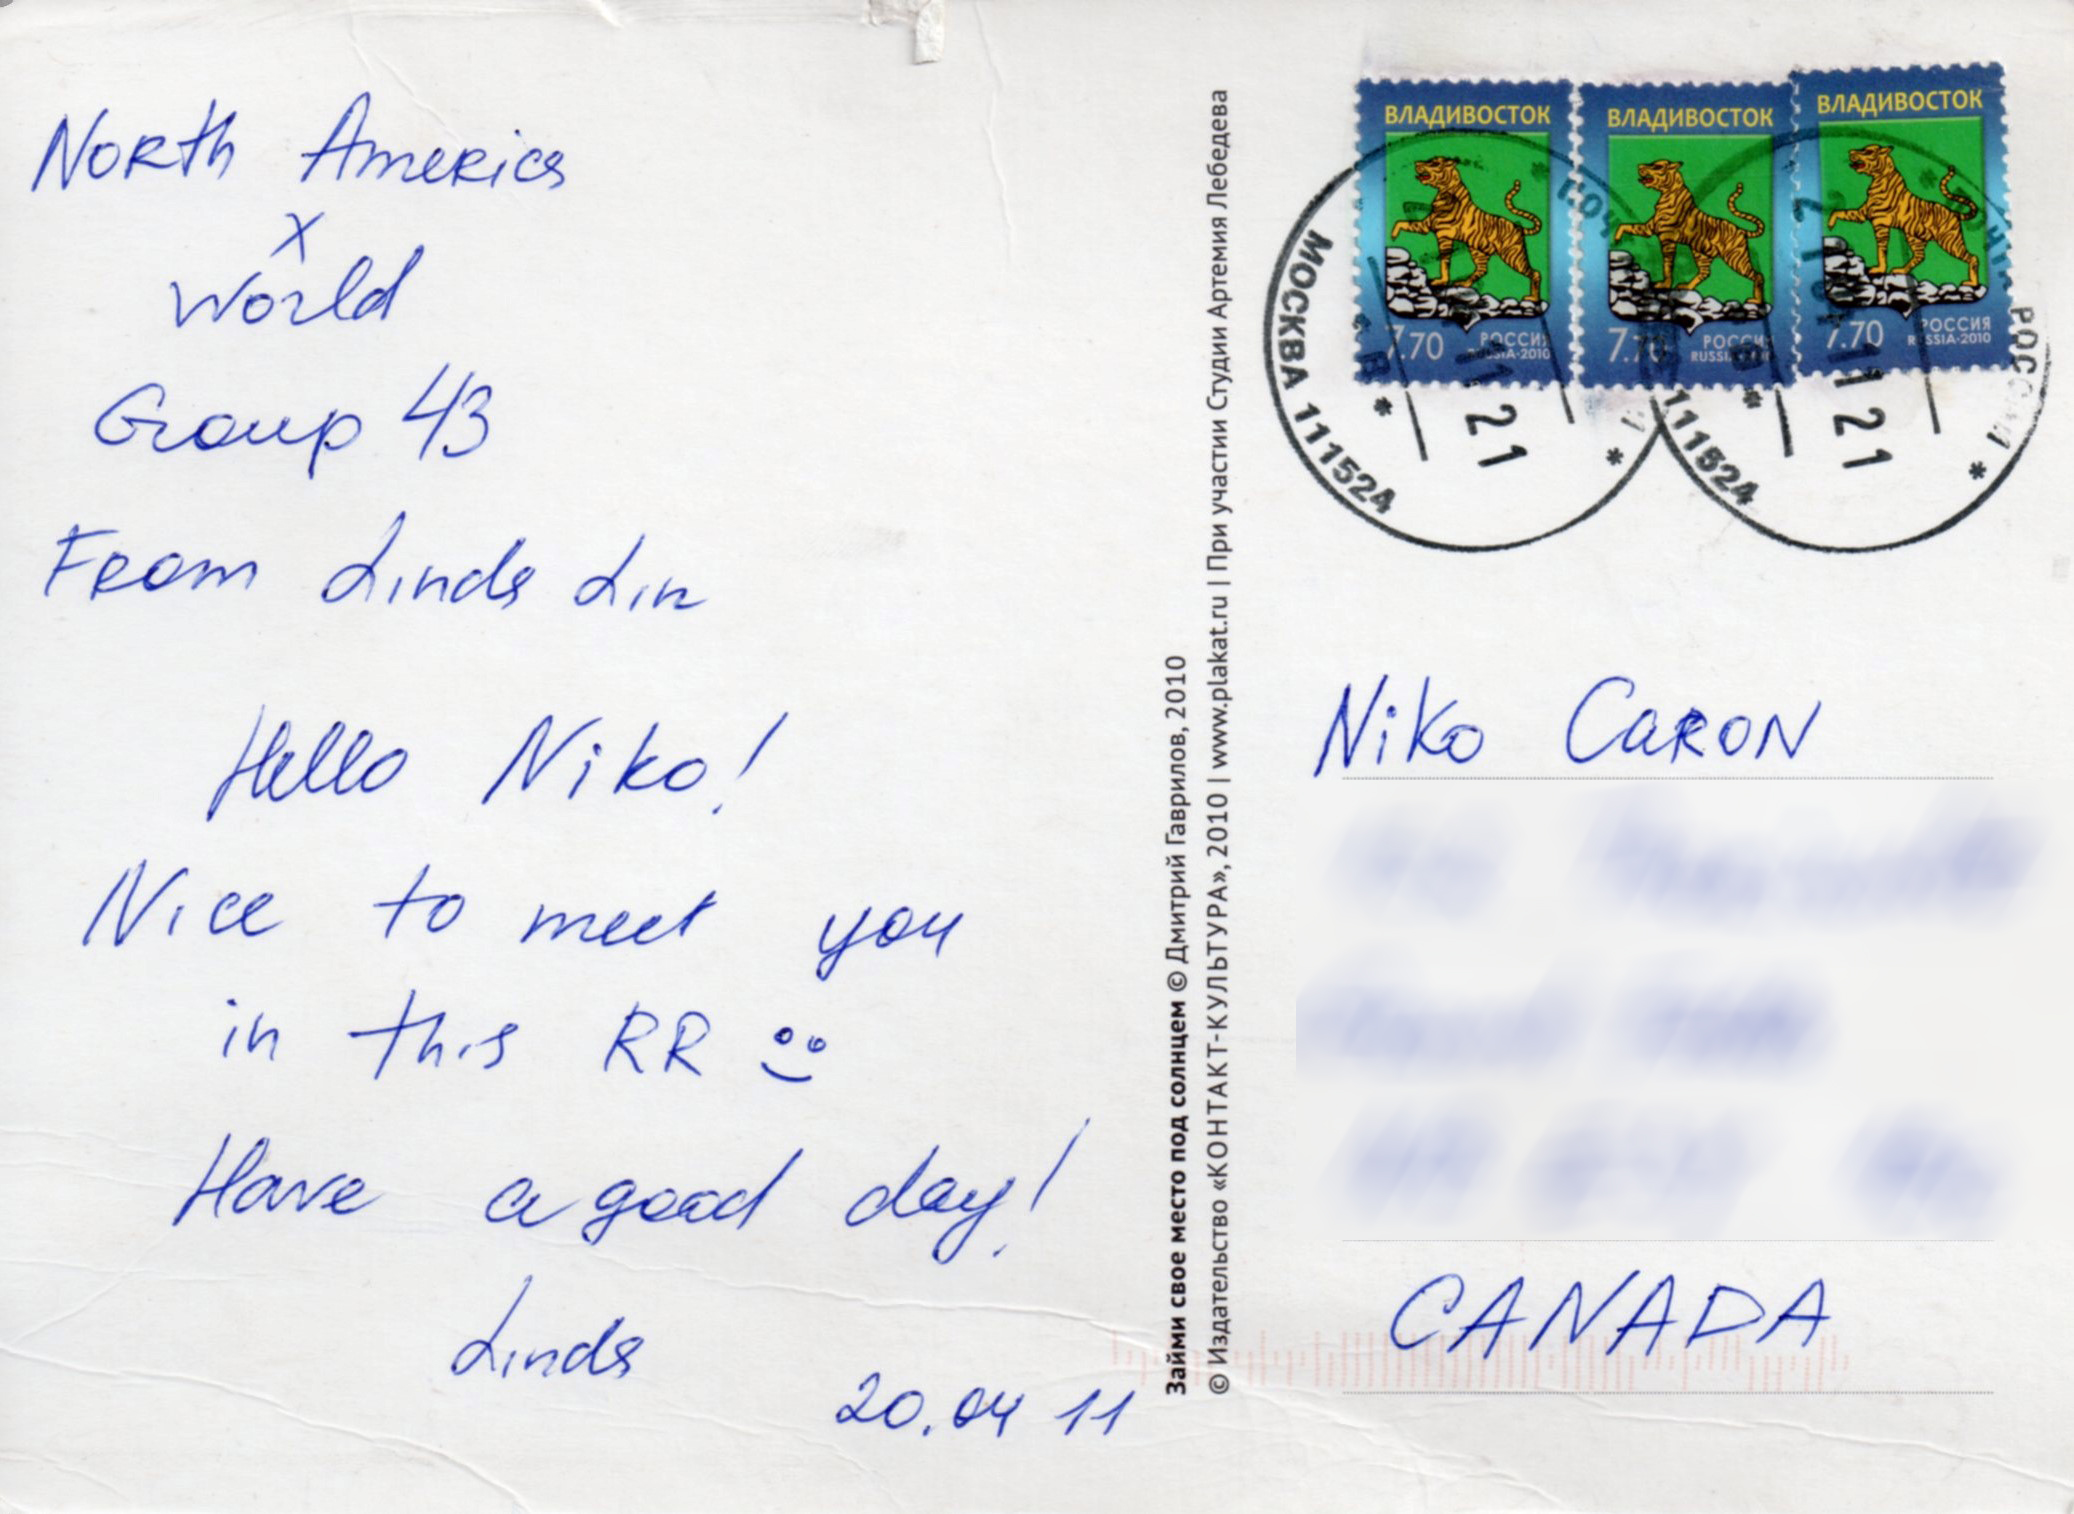 North America
x
World
Group 43
From Linda Lin
Hello Niko!
Nice to meet you
in this RR
Have a good day!
Linda
20.04 11
Займи свое место под солнцем © Дмитрий Гаврилов, 2010
© Издательство «КОНТАКТ-КУЛЬТУРА», 2010 | www.plakat.ru | При участии Студии Артемия Лебедева
ВЛАДИВОСТОК
7.70
РОССИЯ
RUSSIA-2010
ВЛАДИВОСТОК
7.70
РОССИЯ
RUSSIA-2010
ВЛАДИВОСТОК
7.70
РОССИЯ
RUSSIA-2010
МОСКВА 111524
11 21
111524
11 21
РОССИИ
Niko Caron
CANADA